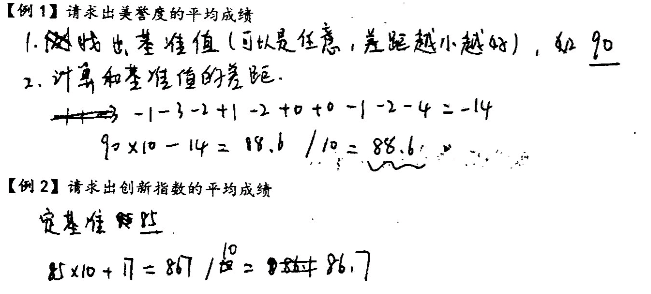 【例 1】请求出美誉度的平均成绩
1. 找出基准值(可以是任意，差距越小越好)，如 90
2. 计算和基准值的差距.
-1-3-2+1-2+0+0-1-2-4=-14
90×10-14=88.6 /10=88.6
【例 2】请求出创新指数的平均成绩
定基准 85
85×10+17=867 /10= 86.7